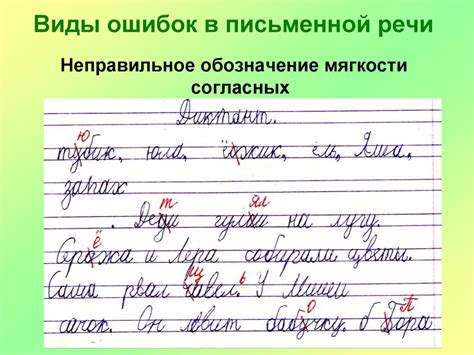 Виды ошибок в письменной речи
Неправильное обозначение мягкости
согласных
Диктант.
ю
тубик, юла, ёжик, ель, Яша,
запах
т ял
Деди на лугу.
ё
и Лера собирали цветы.
щ
Саша рвал авел. ь У Миши
о П
сачок. Он ловит бабучку. б Гора